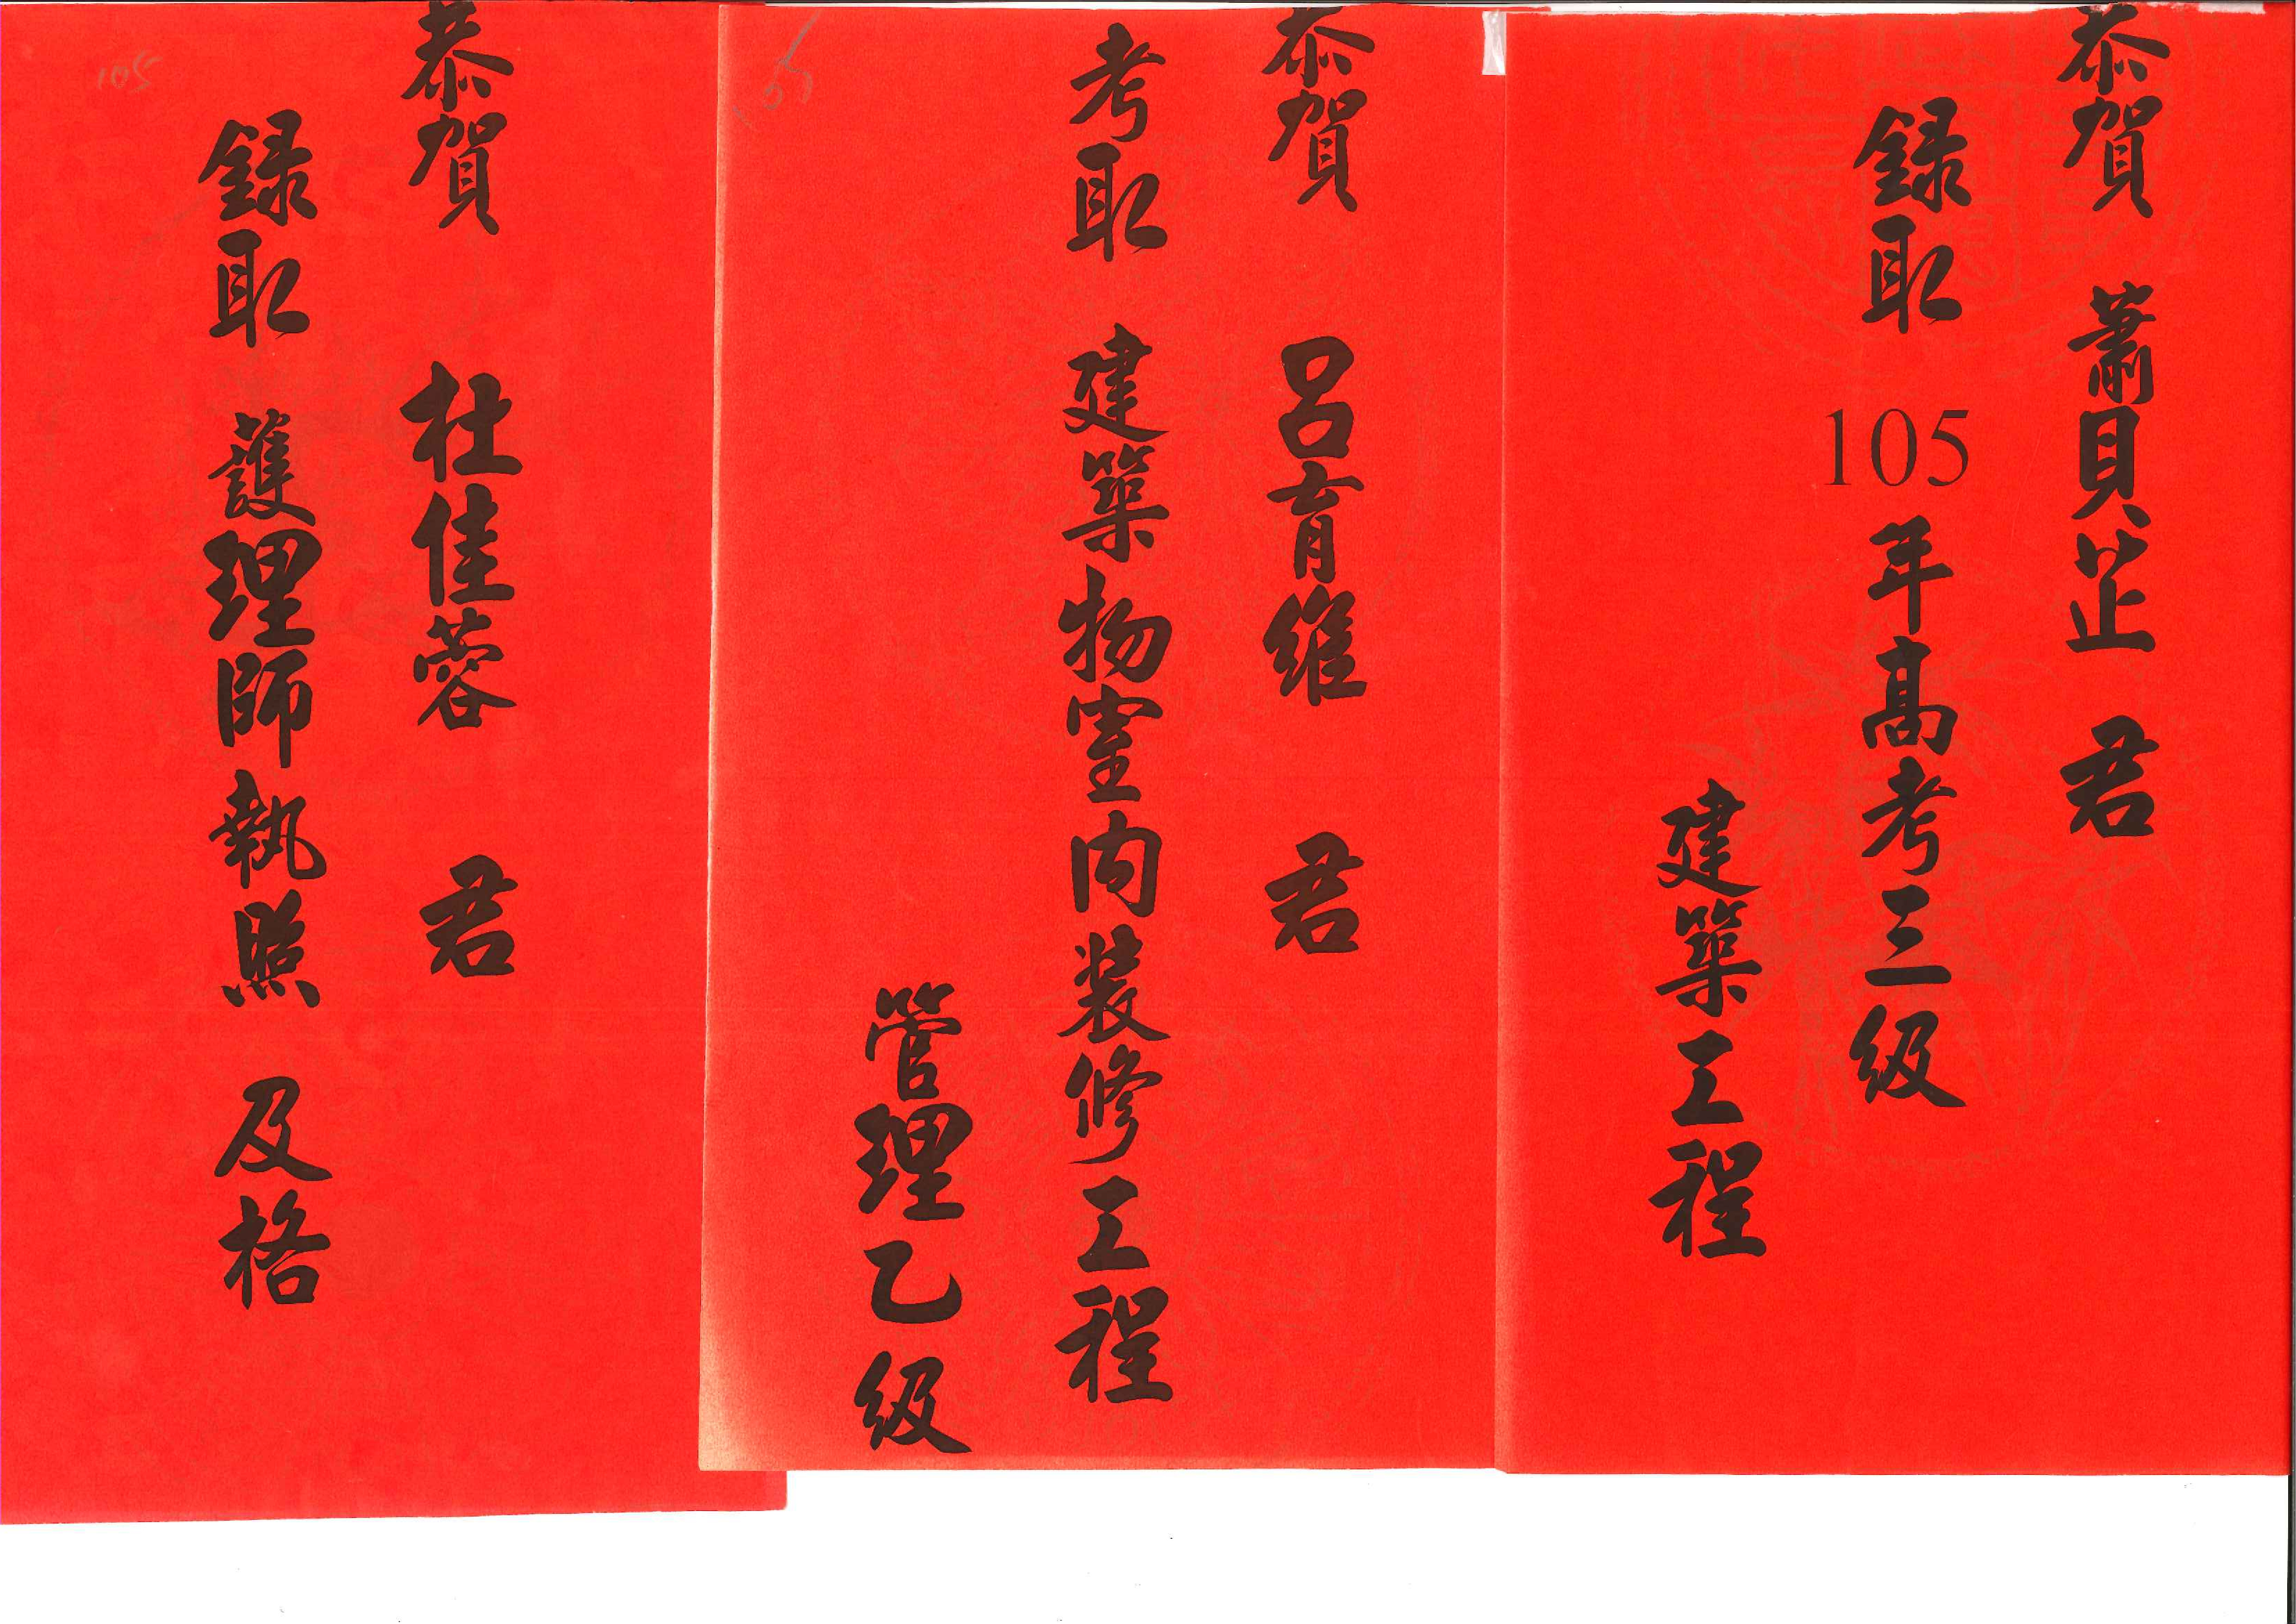 恭賀 蕭貝芷 君
錄取 105 年高考三級
建築工程
恭賀 呂育維 君
考取 建築物室內裝修工程
管理乙級
105
恭賀 杜佳蓉 君
錄取 護理師執照 及格
105